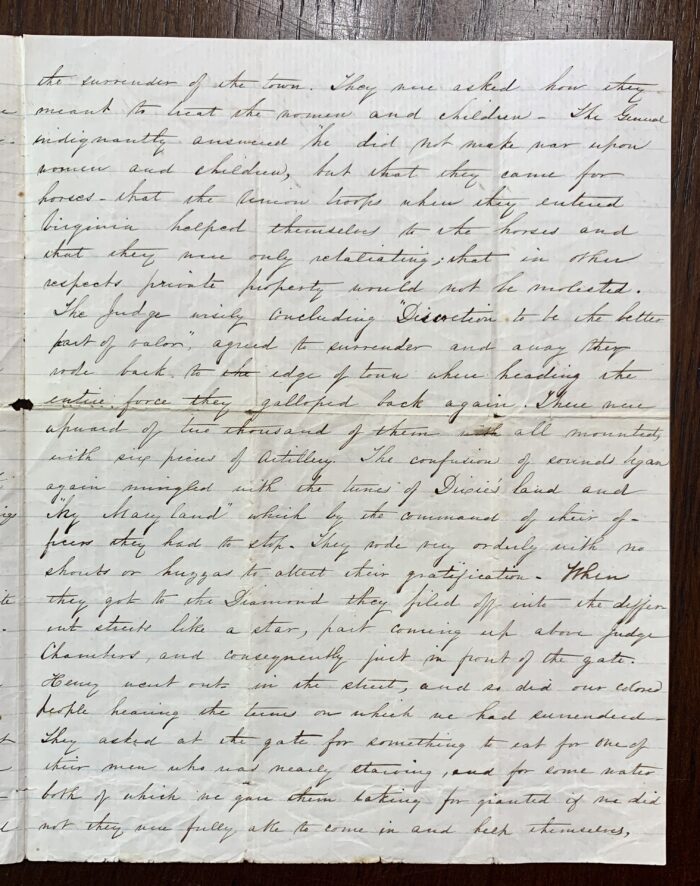 the surrender of the town. They were asked how they
meant to treat the women and children - The General
indignantly answered "he did not make war upon
women and children, but that they came for
horses - that the Union troops when they entered
Virginia helped themselves to the horses and
that they were only retaliating; that in other
respects private property would not be molested.
The Judge wisely concluding "Discretion to be the better
part of valor", agreed to surrender and away they
rode back to the edge of town where heading the
entire force they galloped back again. There were
upward of two thousand of them with all mounted,
with six pieces of Artillery. The confusion of sounds began
again mingled with the tunes of Dixie's land and
"My Maryland" which by the command of their of-
ficers they had to stop. They rode very orderly with no
shouts or huzzas to attest their gratification - When
they got to the Diamond they filed off into the differ
ent streets like a star, part coming up above Judge
Chambers, and consequently just in front of the gate.
Henry went out in the street, and so did our colored
people hearing the terms on which we had surrendered -
They asked at the gate for something to eat for one of
their men who was nearly starving, and for some water
both of which we gave them taking for granted if we did
not they were fully able to come in and help themselves,